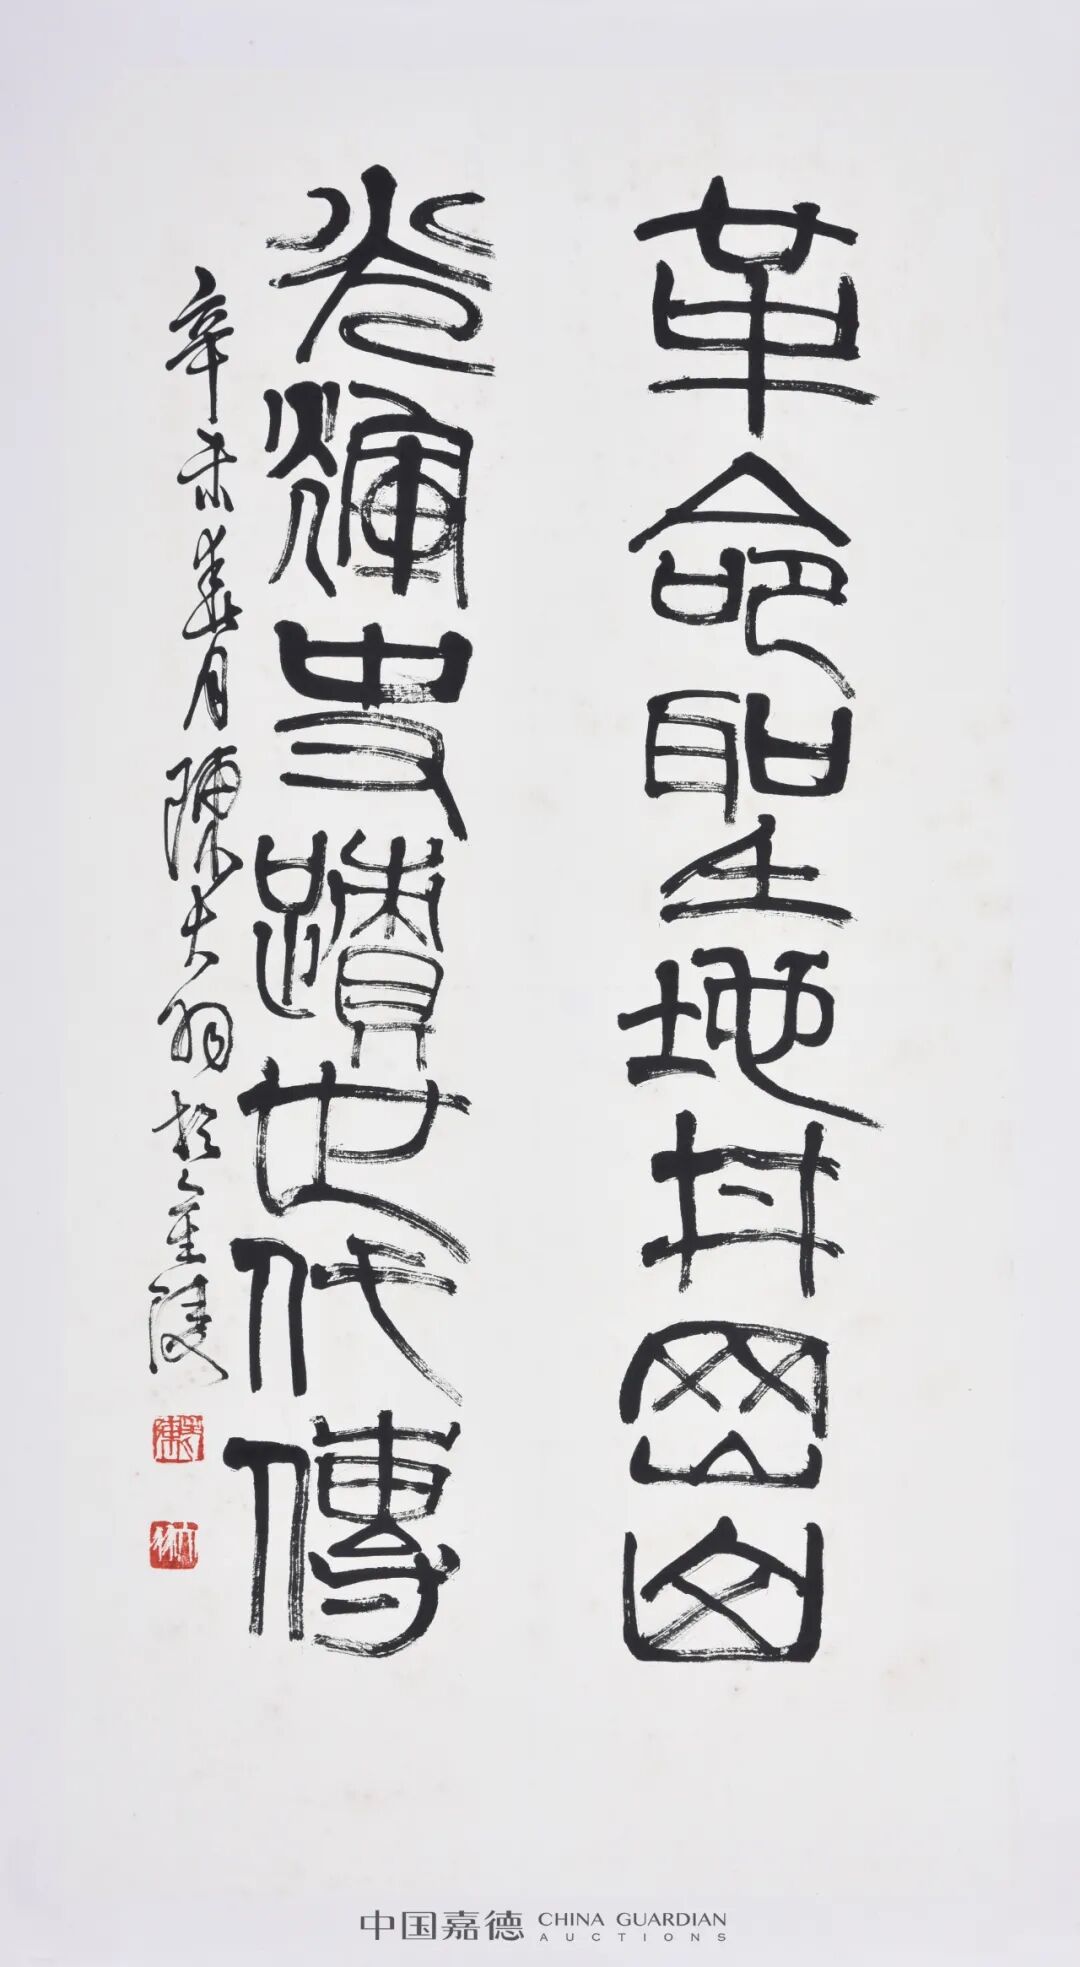 革命聖地井岡山
光輝史蹟世代傳
辛未春月陳大羽於金陵
中国嘉德 CHINA GUARDIAN
AUCTIONS